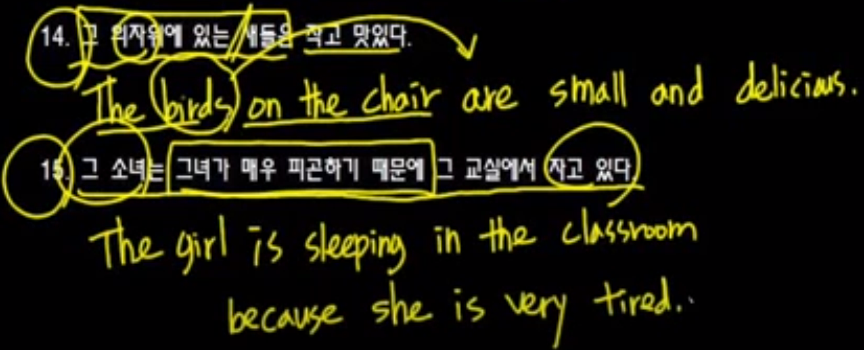 14. 그 의자위에 있는 새들은 작고 맛있다.
The birds on the chair are small and delicious.
15. 그 소녀는 그녀가 매우 피곤하기 때문에 그 교실에서 자고 있다.
The girl is sleeping in the classroom
because she is very tired.